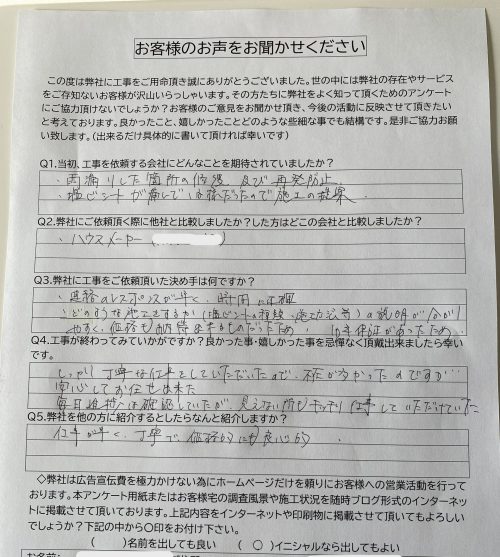 お客様のお声をお聞かせください
この度は弊社に工事をご用命頂き誠にありがとうございました。世の中には弊社の存在やサービス
をご存知ないお客様が沢山いらっしゃいます。その方たちに弊社をよく知って頂くためのアンケート
にご協力頂けないでしょうか？お客様のご意見をお聞かせ頂き、今後の活動に反映させて頂きたい
と考えております。良かったこと、嬉しかったことどのような些細な事でも結構です。是非ご協力お願
い致します。（出来るだけ具体的に書いて頂ければ幸いです）
Q1.当初、工事を依頼する会社にどんなことを期待されていましたか？
・雨漏りした箇所の修繕 及び 再発防止
・塩ビシートが 様だったので施工の提案
Q2.弊社にご依頼頂く際に他社と比較しましたか？した方はどこの会社と比較しましたか？
・ハウスメーカー（ ）
Q3.弊社に工事をご依頼頂いた決め手は何ですか？
・連絡のレスポンスが早く、時間に正確
・どのような施工をするか（塩ビシートの種類・施工方法等）の説明が分かり
やすく、価格も納得出来るものだったため 10年保証があったため
Q4.工事が終わってみていかがですか？良かった事・嬉しかった事を忌憚なく頂戴出来ましたら幸い
です。
しっかり丁寧な仕事をしていただいたので、
安心してお任せ出来た
毎日 確認していたが 見えない所もキッチリ仕事していただけていた
Q5.弊社を他の方に紹介するとしたらなんと紹介しますか？
仕事が早く、丁寧で、価格的にも良心的
◇弊社は広告宣伝費を極力かけない為にホームページだけを頼りにお客様への営業活動を行って
おります。本アンケート用紙またはお客様宅の調査風景や施工状況を随時ブログ形式のインターネッ
トに掲載させて頂いております。上記内容をインターネットや印刷物に掲載させて頂いてもよろしい
でしょうか？下記の中から〇印をお付け下さい。
（ ）名前を出しても良い （ 〇 ）イニシャルなら出してもよい
お名前：